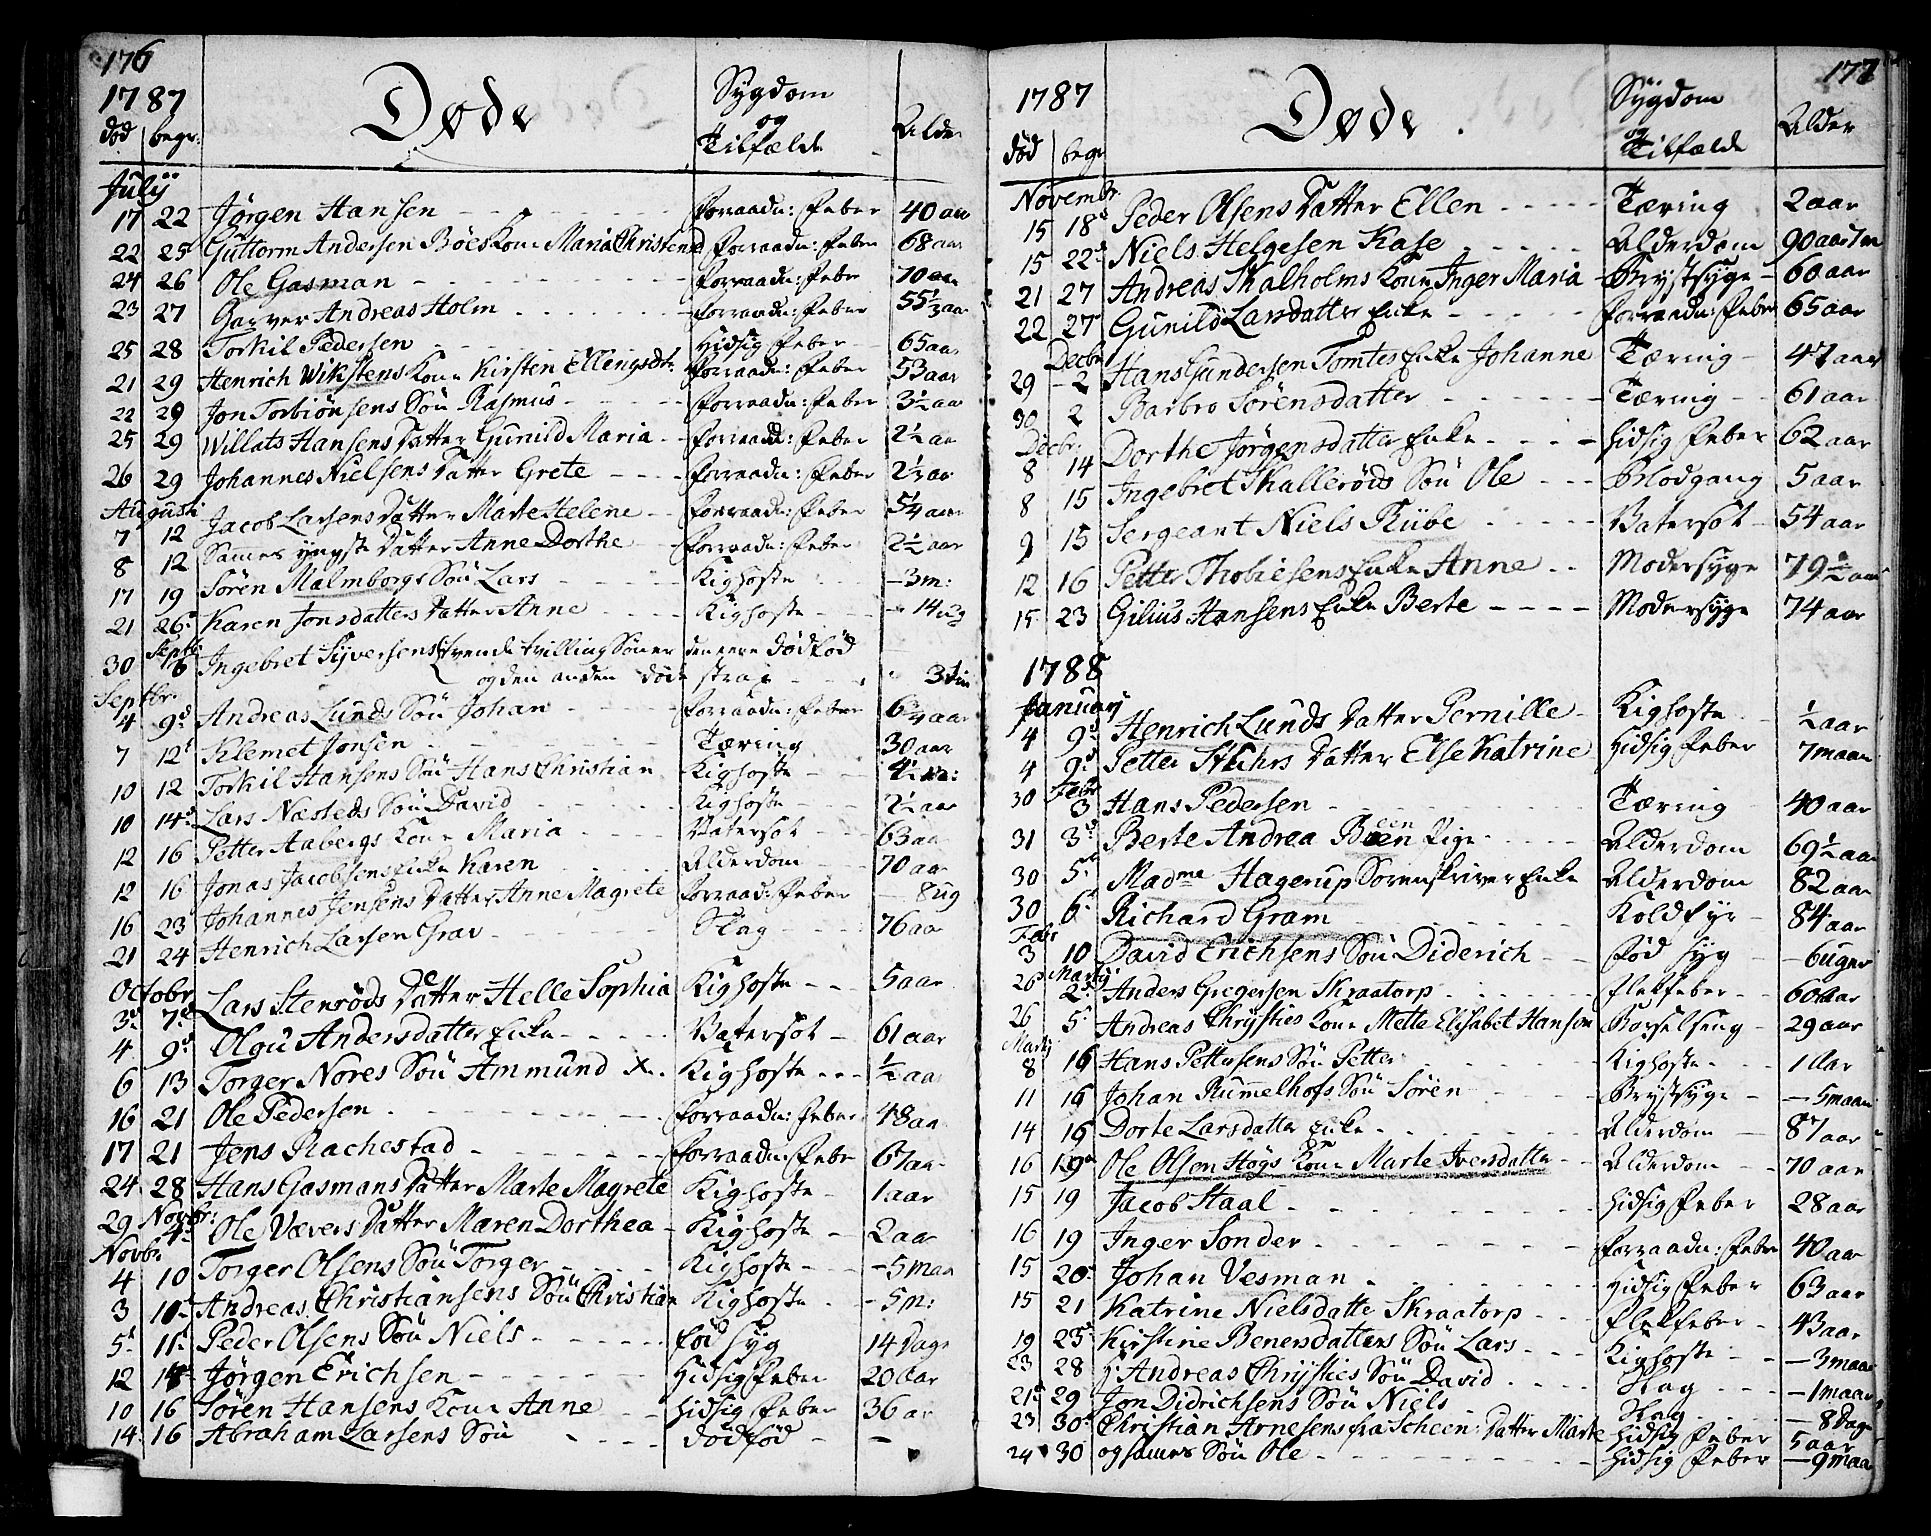 176
1787 Døde Sygdom og Tilfælde Alder
død begr:
Julij
17 22 Jørgen Hansen Forraadn: Feber 40 aar
22 25 Guttorm Andersen Böes Kone Maria Christene Forraadn: Feber 68 aar
24 26 Ole Gasman Forraadn: Feber 70 aar
23 27 Garver Andreas Holm Forraadn: Feber 55½ aar
25 28 Torkil Pedersen Hidsig Feber 65 aar
21 29 Henrich Wikstens Kone Kirsten Ellengsdtr Forraadn: Feber 53 aar
22 29 Jon Torbiönsens Søn Rasmus Forraadn: Feber 3½ aar
25 29 Willats Hansens Datter Gunild Maria Forraadn: Feber 2½ aar
26 29 Johannes Nielsens Datter Grete Forraadn: Feber 2½ aar
Augusti
7 12 Jacob Larsens Datter Marte Helene Forraadn: Feber 5¼ aar
8 12 Sames yngste Datter Anne Dorthe Forraadn: Feber 2½ aar
17 19 Sören Malmborgs Søn Lars Kighoste 3 m:
21 26 Karen Jonsdatters Datter Anne Kighoste 14 ug
Septbr
30 16 Ingebret Syversens tvende tvilling Sønner den eene dödföd
og den anden døde strax 3 tim
Septbr.
4 9d Andreas Lunds Søn Johan Forraadn: Feber 6¾ aar
7 12 Klemet Jonsen Tæring 30 aar
10 12 Torkil Hansens Søn Hans Christian Kighoste 4½ m:
10 14 Lars Næsteds Søn David Kighoste 2½ aar
12 16 Petter Aabergs Kone Maria Vatersot 63 aar
12 16 Jonas Jacobsens Enke Karen Alderdom 70 aar
16 23 Johannes Jensens Datter Anne Magrete Forraad: Feber 8 ug
21 24 Henrich Larsen Grav Slag 76 aar
Octobr
3d 7d Lars Stensröds Datter Helle Sophia Kighoste 5 aar
4 9d Olgu Andersdatter Enke Vatersot 61 aar
6 13 Torger Nores Søn Ammund x Kighoste ½ aar
16 21 Ole Pedersen Forraadn: Feber 48 aar
17 21 Jens Rachestad Forraadn: Feber 67 aar
24 28 Hans Gasmans Datter Marte Magrete Kighoste 1 aar
Novbr:
29 4 Ole Værers Datter Maren Dorthea Kighoste 2 aar
Novbr
4 10 Torger Olsens Søn Torger Kighoste 5 maan
3 10 Andreas Christiansens Søn Christian Kighoste 5 m:
5 11 Peder Olsens Søn Niels föd syg 14 Dage
12 14 Jørgen Erichsen Hidsig Feber 20 aar
10 16 Sören Hansens Kone Anne Hidsig Feber 36 ar
14 16 Abraham Larsens Søn dödföd
177
1787 Døde. Sygdom og Tilfælde Alder
død begr
Novembr
15 18 Peder Olsens Datter Ellen Tæring 2 aar
15 22 Niels Helgesen Kase Alderdom 90 aar 7 m
21 27 Andreas Skalholms Kone Inger Maria Brystsyge 60 aar
22 27 Gunild Larsdatter Enke Forraadn: Feber 65 aar
Decbr
29 2 Hans Gundersen Tomtes Enke Johanne Tæring 47 aar
30 2 Barbro Sörensdatter Tæring 61 aar
Decbr
8 14 Dorthe Jörgensdatter Enke Hidsig Feber 62 aar
8 15 Ingebret Skalleröds Søn Ole Blodgang 5 aar
9 15 Sergeant Niels Rübe Vatersot 54 aar
12 16 Petter Thobiesens Enke Anne Modersyge 79½ aar
15 23 Gilius Hansens Enke Berte Modersyge 74 aar
1788
Januarij
4 9d Henrich Lunds Datter Pernille Kighoste ½ aar
4 9d Petter Stuhrs Datter Else Katrine Hidsig Feber 7 maan
Febr
30 3 Hans Pedersen Tæring 40 aar
31 3 Berte Andrea Been Pige Alderdom 69½ aar
30 5 Madme Hagerup Sorenskriver Enke Alderdom 82 aar
30 6 Richard Gram Koldfyr 84 aar
Febr
3 10 David Erichsens Søn Diderich Föd syg 6 uger
Martij
26 2 Anders Gregersen Skraatorp Flekfeber 60 aar
26 5 Andreas Chrysties Kone Mette Elisabet Hansen Barselseng 29 aar
Martij
8 16 Hans Pettersens Søn Petter Kighoste 1 aar
11 16 Johan Rummelhofs Søn Sören Brystsyge 5 maan
14 19 Dorte Larsdatter Enke Alderdom 87 aar
16 19 Ole Olsen Högs Kone Marte Iversdatter Alderdom 70 aar
15 19 Jacob Staal Hidsig Feber 28 aar
16 19 Inger Sonder Forraadn: Feber 40 aar
15 20 Johan Vesman Hidsig Feber 63 aar
15 21 Katrine Nielsdatter Skraatorp Flekfeber 43 aar
19 23 Kirstine Benersdatters Søn Lars Kighoste 3 maan
23 28 H Andreas Chrysties Søn David Slag 1 maan
21 29 Jon Didrichsens Søn Niels Slag 8 Dage
23 30 Christian Arnesens fra Scheen Datter Marte Hidsig Feber 5 aar
24 30 og sames Søn Ole Hidsig Feber 9 maa